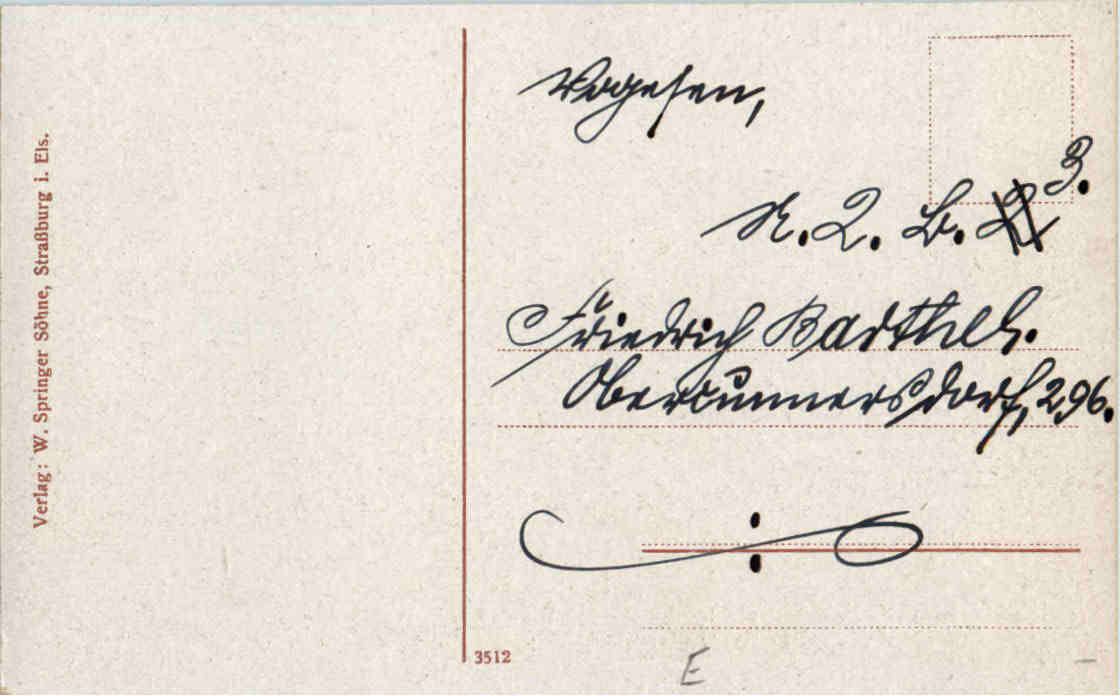 Verlag: W. Springer Söhne, Straßburg i. Els.
Vogesen,
3.
N. 2. B.
Friedrich Barthel.
Obercunnersdorf, 296.
3512
E